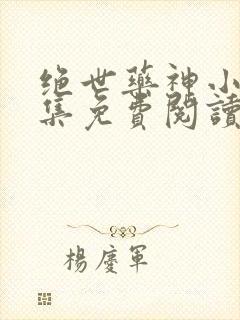 绝世藥神小
集免費閱讀
楊慶軍